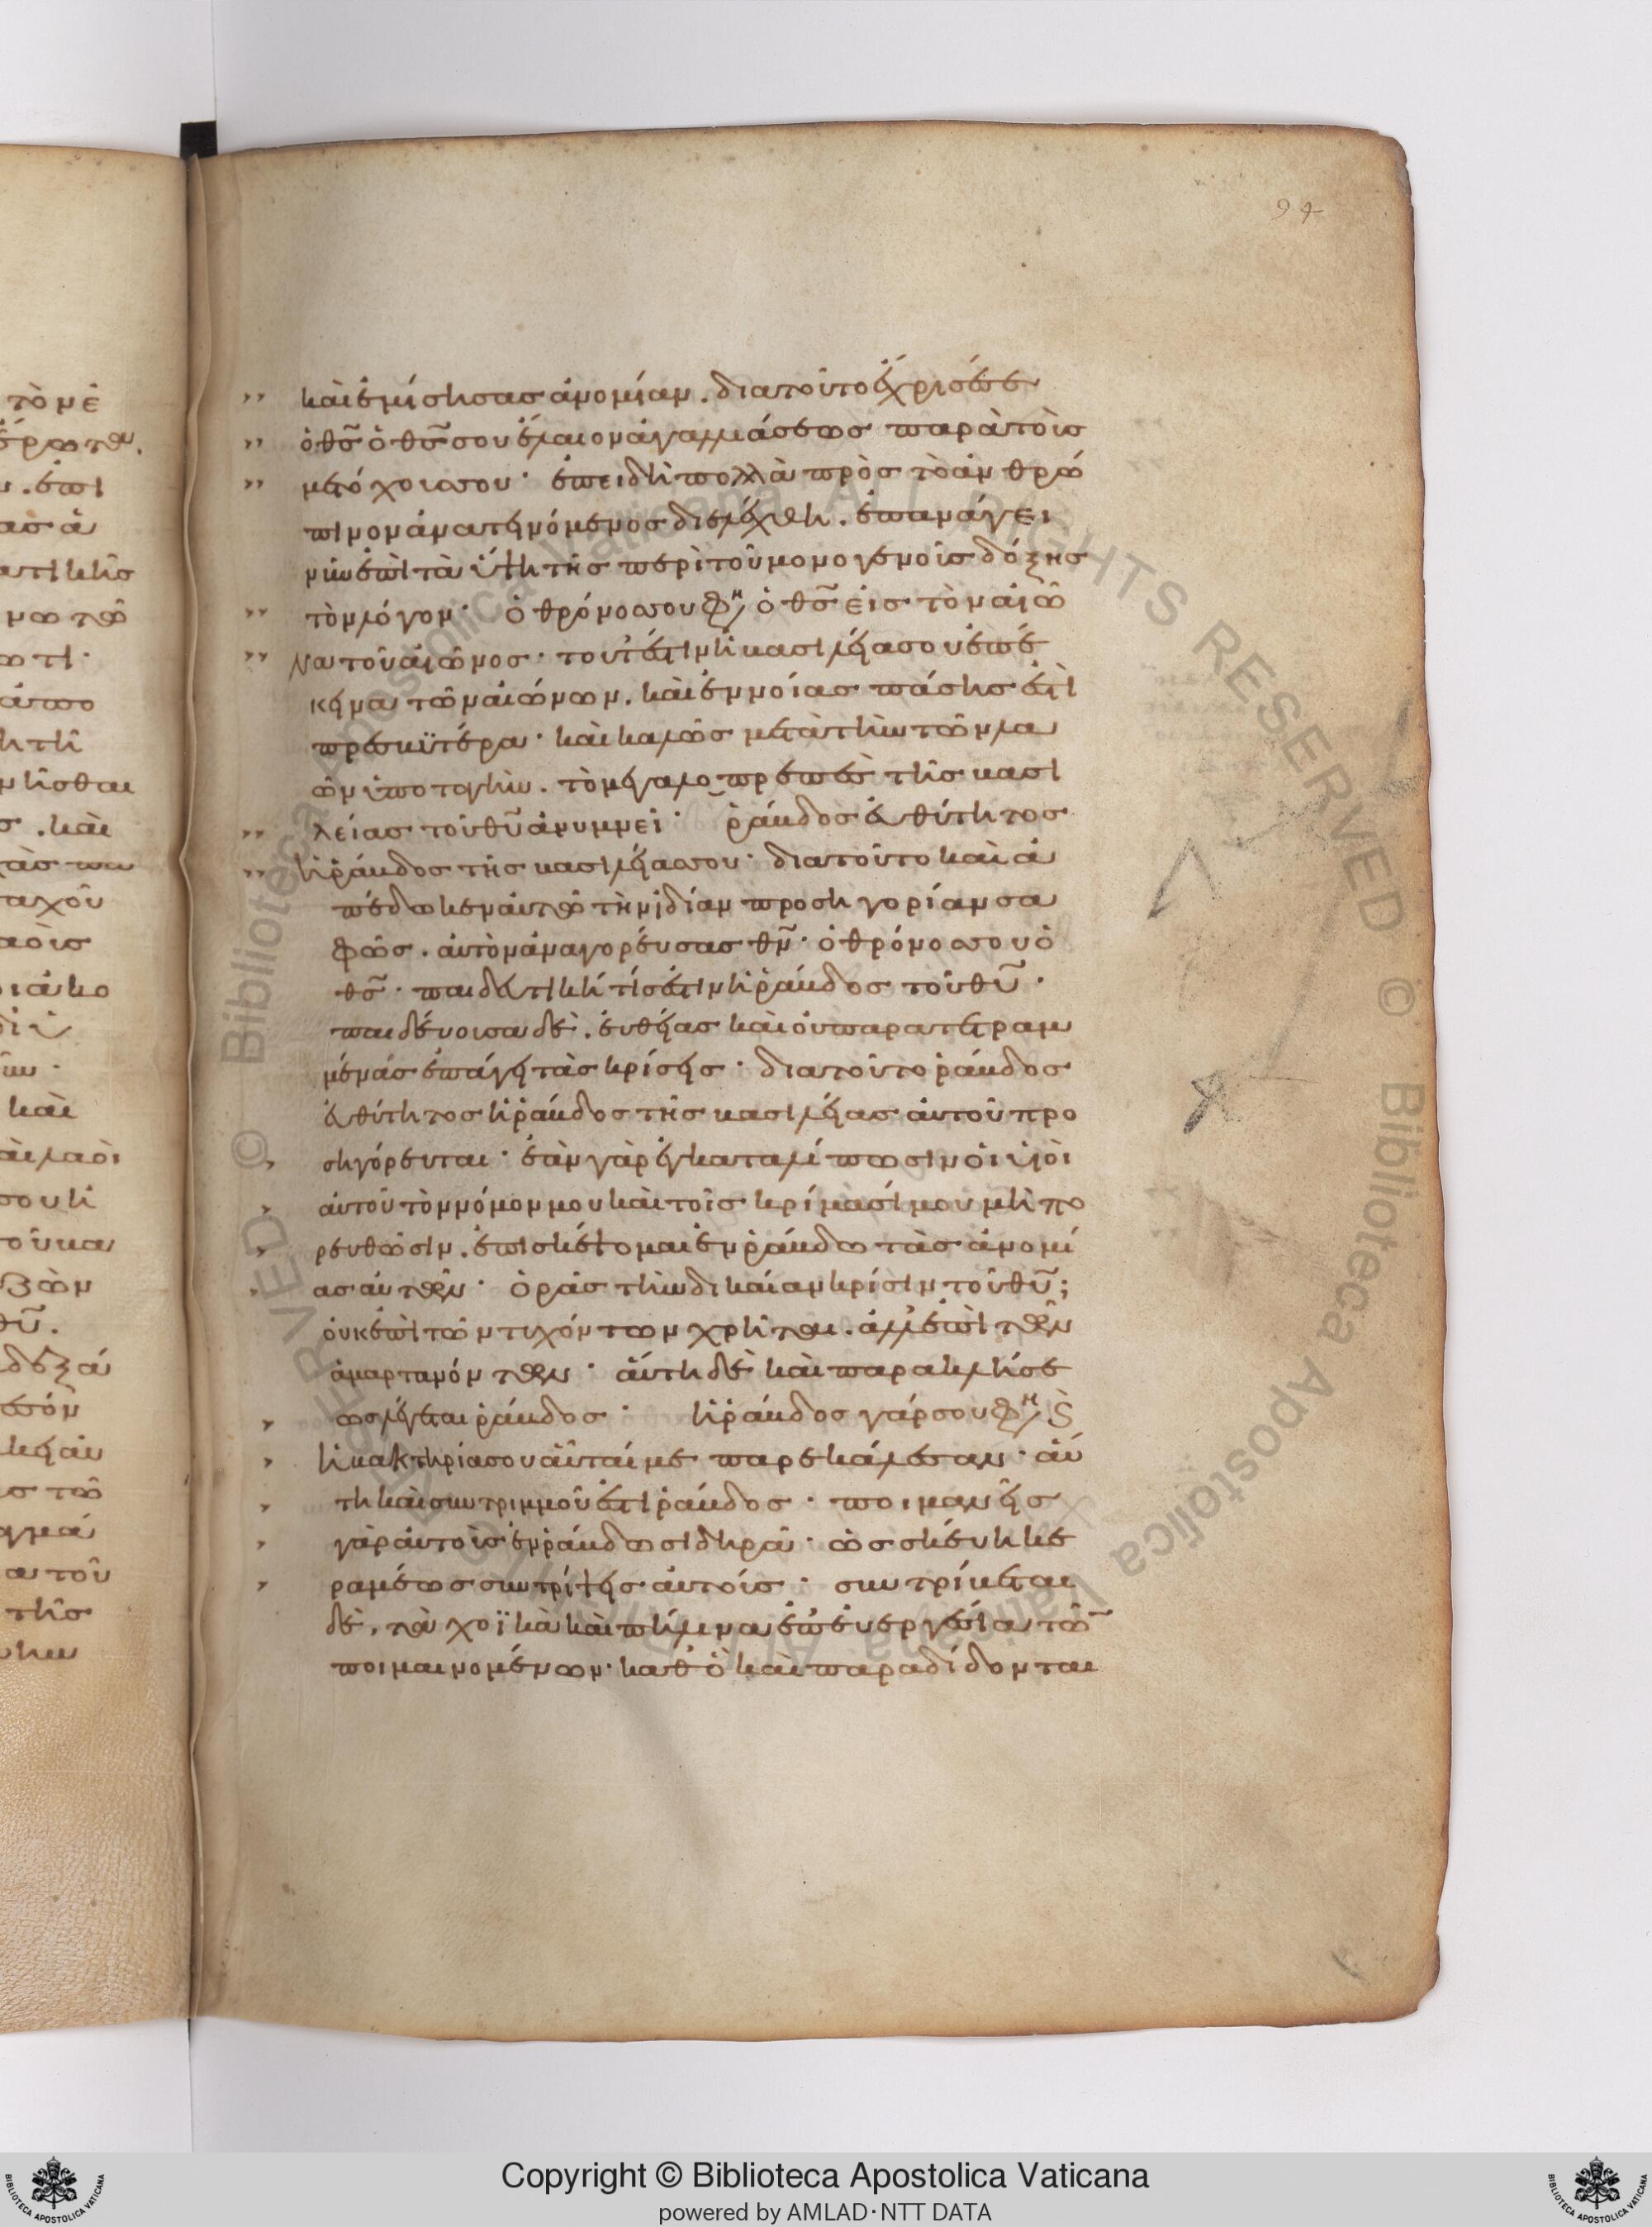 94
καὶ ἐμίσησας ἀνομίαν. διατοῦτο ἔχρισέ σε
ὁ θ̅ς̅ ὁ θ̅ς̅ σου ἔλαιον ἀγαλλιάσεως παρὰ τοὺς
μετόχους σου· ἐπειδὴ πολλὰ πρὸς τὸ ἀνθρώ
πινον ἀνατεινόμενος διελέχθη. ἐπανάγει
νῦν ἐπὶ τὰ ὕψη τῆς περὶ τοῦ μονογενοῦς δόξης
τὸν λόγον· ὁ θρόνος σου φη ὁ θ̅ς̅ εἰς τὸν αἰῶ
να τοῦ αἰῶνος· τουτέστιν ἡ βασιλεία σου ἐπέ
κεινα τῶν αἰώνων. καὶ ἐννοίας πάσης ἐστὶ
πρεσβυτέρα· καὶ καλῶς μετὰ τὴν τῶν λα
ῶν ὑποταγὴν. τὸ μεγαλοπρεπὲς τῆς βασι
λείας τοῦ θ̅υ̅ ἀνυμνεῖ· ῥάβδος εὐθύτητος
ἡ ῥάβδος τῆς βασιλείας σου· διατοῦτο καὶ ἀ
πέδωκεν αὐτῶ τὴν ἰδίαν προσηγορίαν σα
φῶς. αὐτὸν ἀναγορεύσας θ̅ν̅· ὁ θρόνος σου ὁ
θ̅ς̅· παιδευτική τίς ἐστιν ἡ ῥάβδος τοῦ θ̅υ̅·
παιδεύουσα δὲ. εὐθείας καὶ οὐ παρατετραμ
μένας ἐπάγει τὰς κρίσεις· διατοῦτο ῥάβδος
εὐθύτητος ἡ ῥάβδος τῆς βασιλείας αὐτοῦ προ
σηγόρευται· ἐὰν γὰρ ἐγκαταλίπωσιν οἱ υἱοὶ
αὐτοῦ τὸν νόμον μου καὶ τοῖς κρίμασί μου μὴ πο
ρευθῶσιν. ἐπισκέψομαι ἐν ῥάβδω τὰς ἀνομί
ας αὐτῶν· ὁρᾶς τὴν δικαίαν κρίσιν τοῦ θ̅υ̅;
οὐκ ἐπὶ τῶν τυχόντων χρῆται. ἀλλ' ἐπὶ τῶν
ἁμαρτανόντων· αὕτη δὲ καὶ παρακλήσε
ως λέγεται ῥάβδος· ἡ ῥάβδος γάρ σου φη ϛ
ἡ βακτηρία σου αὗταί με παρεκάλεσαν· αὕ
τη καὶ συντριμμοῦ ἐστι ῥάβδος· ποιμανεῖς
γὰρ αὐτοὺς ἐν ῥάβδω σιδηρᾶ· ὡς σκεύη κε
ραμέως συντρίψεις αὐτούς· συντρίβεται
δὲ, τὰ χοϊκὰ καὶ πήλινα ἐπ' εὐεργεσία τῶ̅
ποιμαινομένων· καθ' ὃ καὶ παραδίδονται
Copyright © Biblioteca Apostolica Vaticana
powered by AMLAD·NTT DATA